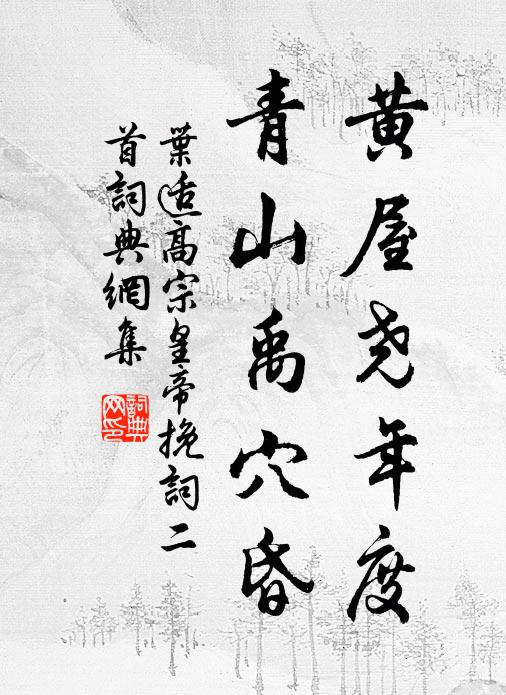 黄屋尧年度
青山禹穴昏
葉适高宗皇帝挽詞二
首詞典網集
詞典
网印